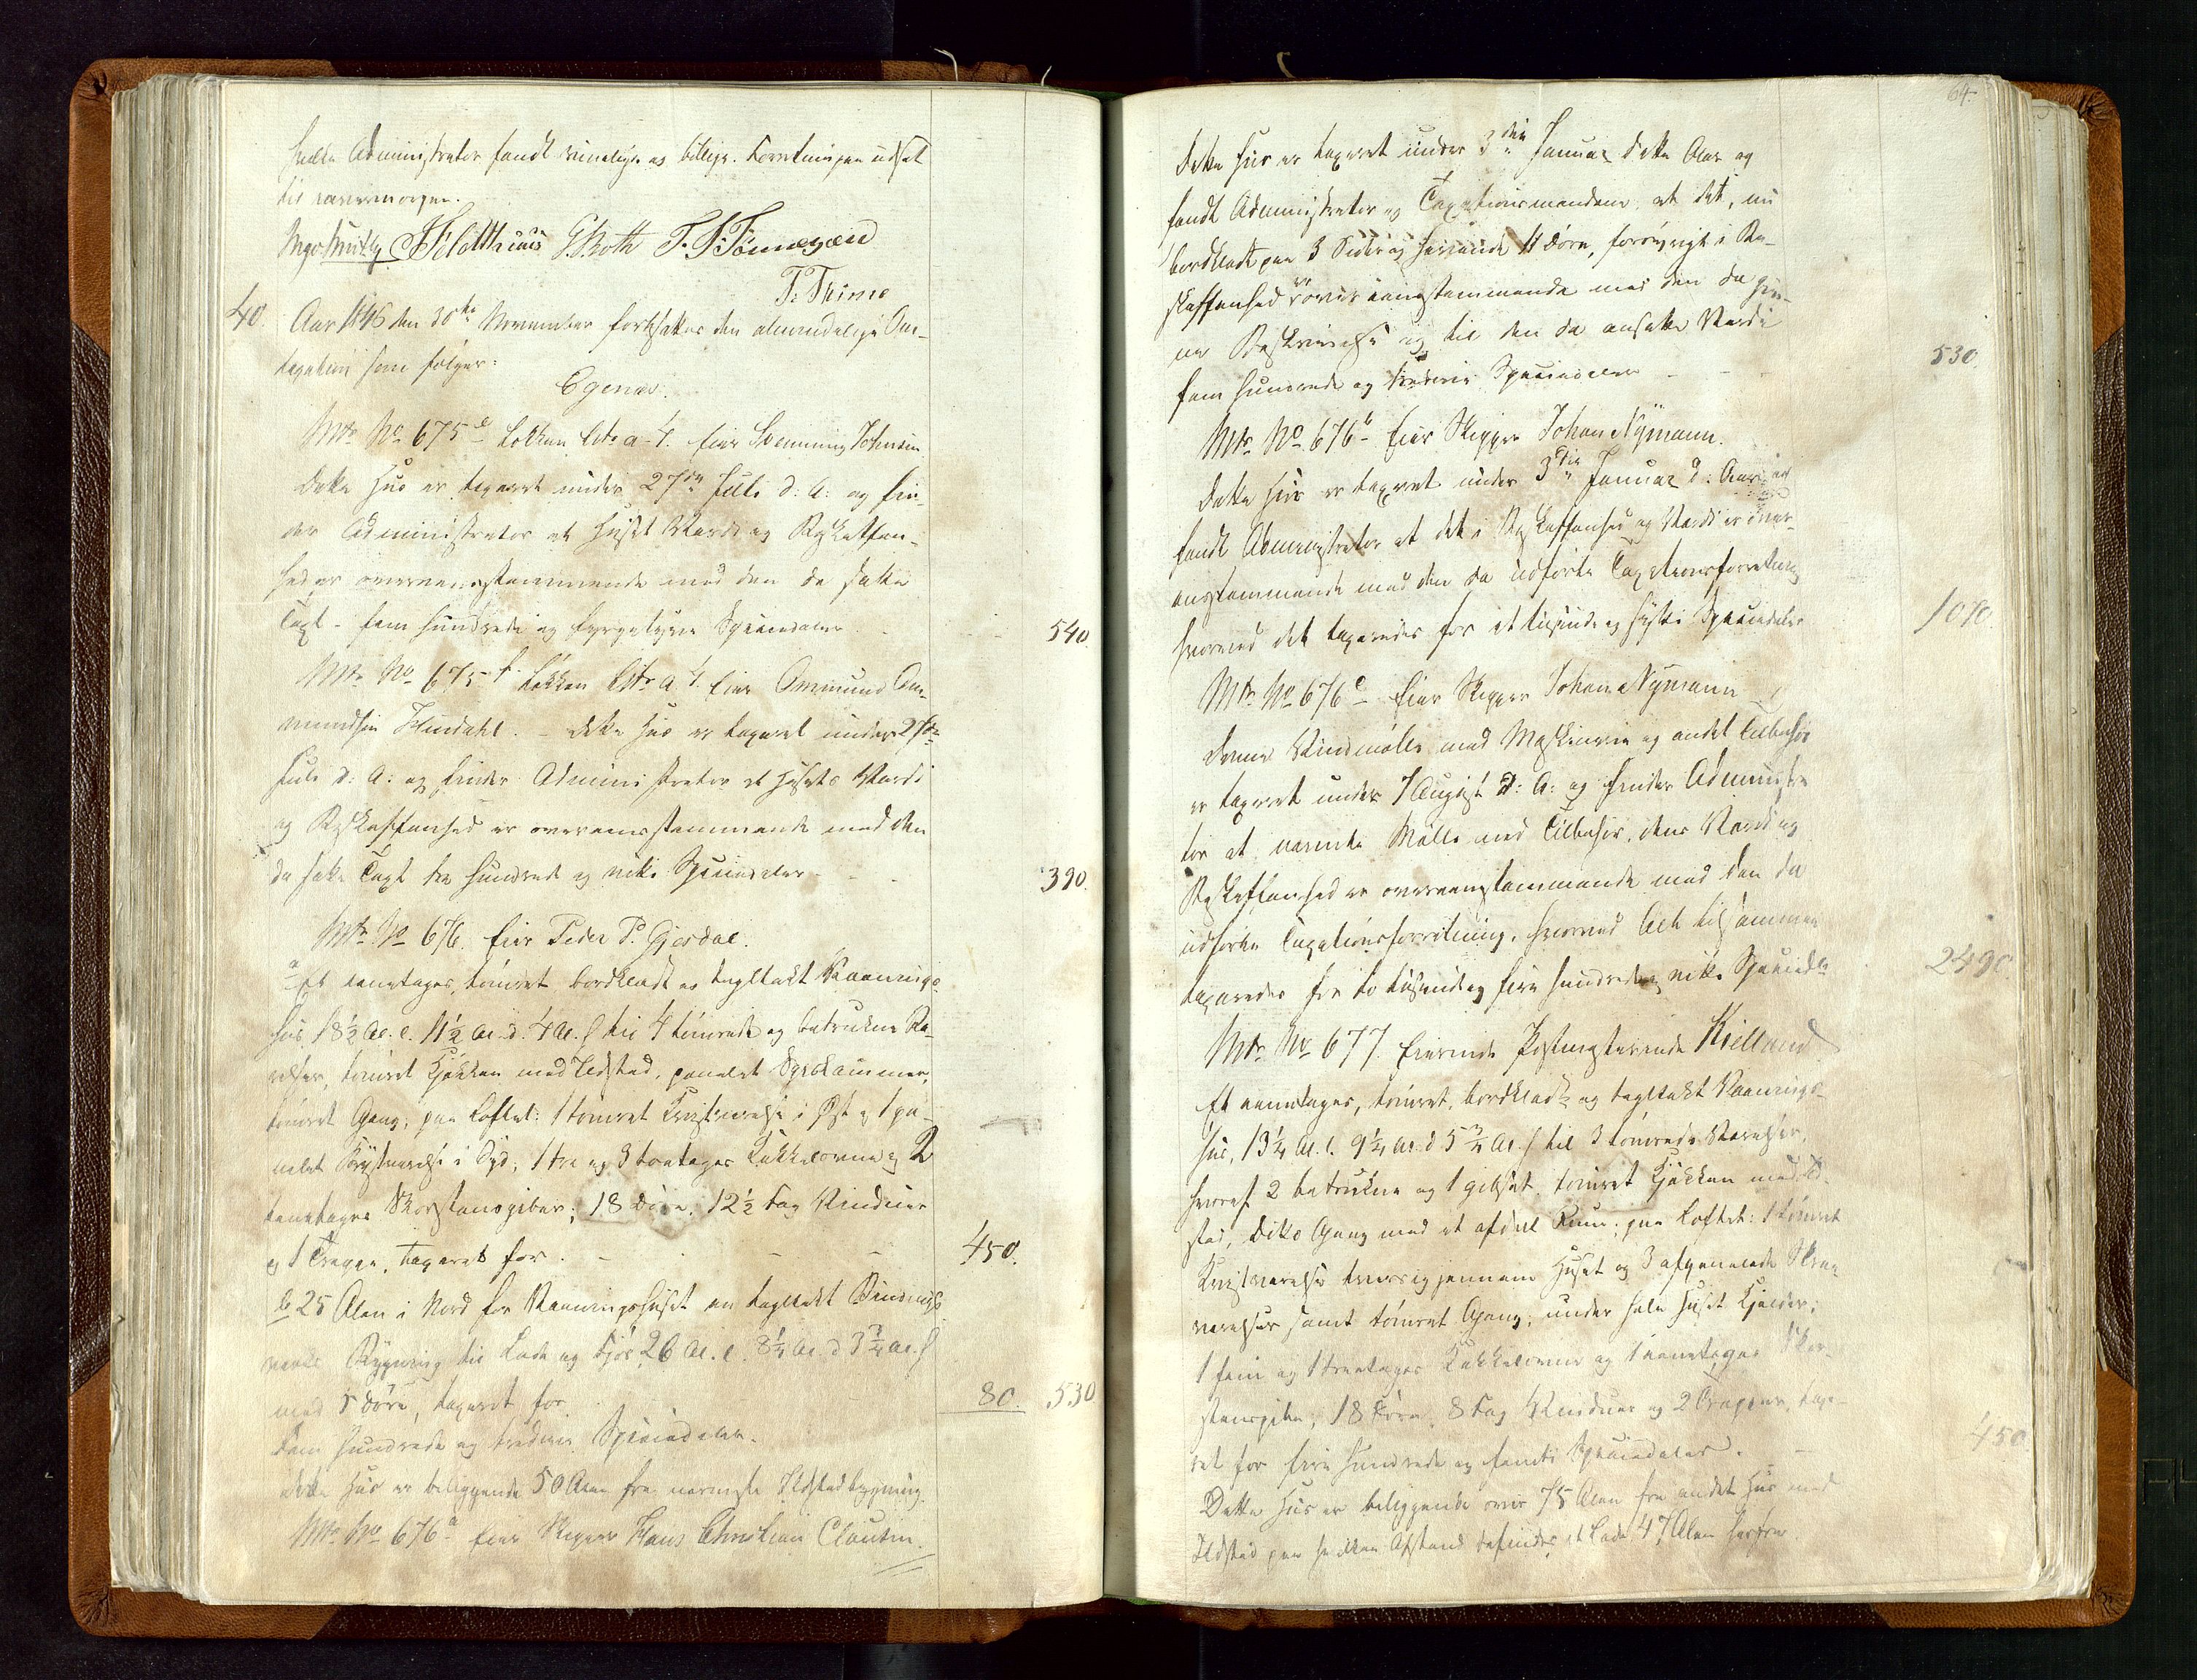 hvilke Administrator fandt rimelige og billige. Forretningen udsat
til overmorgen.
Feldthuus G. Roth T. S. Tönnesen
T. Thime
40. Aar 1846 den 30te November fortsattes den almindelige Om-
taxation som følger:
Egenæs.
Mtr No 675e Løkken Litr a-4. Eier Svenning Johnsen
Dette Huus er taxeret under 27de Juli d: A: og fin-
der Administrator at Huset Værdi og Beskaffen-
hed er overeensstemmende med den da satte
Taxt - fem hundrede og fyrgetyve Speciedaler 540.
Mtr No 675f Løkken Litr a 4. Eier Ommund Om-
mundsen Windahl. - dette Huus er taxeret under 27de
Juli d: A: og finder Administrator at Husets Værdi
og Beskaffenhed er overeensstemmende med den
da satte Taxt tre hundrede og niti Speciedaler 390.
Mtr No 676. Eier Peder P. Gjesdal.
a Et eenetages, tømret bordklædt og tagltækt Vaanings-
huus 18½ Al. l. 11½ Al. d. 4 Al. h til 4 tømrede og betrukne Væ-
relser, tømret Kjøkken med Ildsted, panelet Spiskammer,
tømret Gang; paa Loftet: 1 tømret Kvistværelse i Øst og 1 pa-
nelet Kvistværelse i Syd; 1 tre og 3 toetages Kakkelovne og 2
eenetages Skorstenspiber; 18 Døre, 12½ Fag Vinduer
og 1 Trappe, taxeret for - 450.
b 25 Alen i Nord for Vaaningshuset en tagltækt Bindings-
værks Bygning til Lade og Fjøs 26 Al. l. 8¼ Al. d 3¾ Al. h
med 5 Døre, taxeret for 80. 530
Fem hundrede og tredive Speciedaler.
Dette Huus er beliggende 50 Alen fra nærmeste Ildstedbygning.
Mtr No 676a Eier Skipper Hans Christian Clausen.
64.
Dette Huus er taxeret under 3die Januar dette Aar og
fandt Administrator og Taxationsmændene at det, nu
bordklædt paa 3 Sider og havende 11 Døre, forøvrigt i Be-
skaffenhed er overeensstemmende med den da giv-
ne Beskrivelse og til den da ansatte Værdi
fem hundrede og tredive Speciedaler - - - 530.
Mtr No 676b Eier Skipper Johan Nymann.
Dette Huus er taxeret under 3die Januar d: Aar og
fandt Administrator at det i Beskaffenhed og Værdi er over-
eensstemmende med den da udførte Taxationsforretning
hvorved det taxeredes for et tusinde og Speciedaler 1070.
Mtr No 676c Eier Skipper Johan Nymann
Denne Vindmølle med Maskinerie og andet Tilbehør
er taxeret under 1 August d: A: og finder Administra
tor at nævnte Mølle med Tilbehør, dens Værdi og
Beskaffenhed er overeensstemmende med den da
udførte Taxationsforretning, hvorved Alt tilsammen
taxeredes for to tusinde og fire hundrede og niti Specieda 2490.
Mtr No 677. Eierinde Postmesterinde Kielland
Et eenetages, tømret, bordklædt og tagltækt Vaanings-
huus, 13¼ Al. l. 9¼ Al. d 5¾ Al. h til 3 tømrede Værelser,
hvoraf 2 betrukne og 1 gibset, tømret Kjøkken med Ild-
sted, dito Gang med et afdeelt Rum; paa Loftet: 1 tømret
Kvistværelse tversigjennem Huset og 3 afpanelede Skraa-
værelser samt tømret Gang; under hele Huset Kjelder;
1 fem og 1 treetages Kakkelovne og 1 eenetages Skor-
stenspibe, 18 Døre, 8 Fag Vinduer og 2 Trapper, taxe-
ret for fire hundrede og femti Speciedaler. - 450.
Dette Huus er beliggende over 75 Alen fra andet Huus med
Ildsted paa hvilken Afstand befindes et Lade 47 Alen herfra.